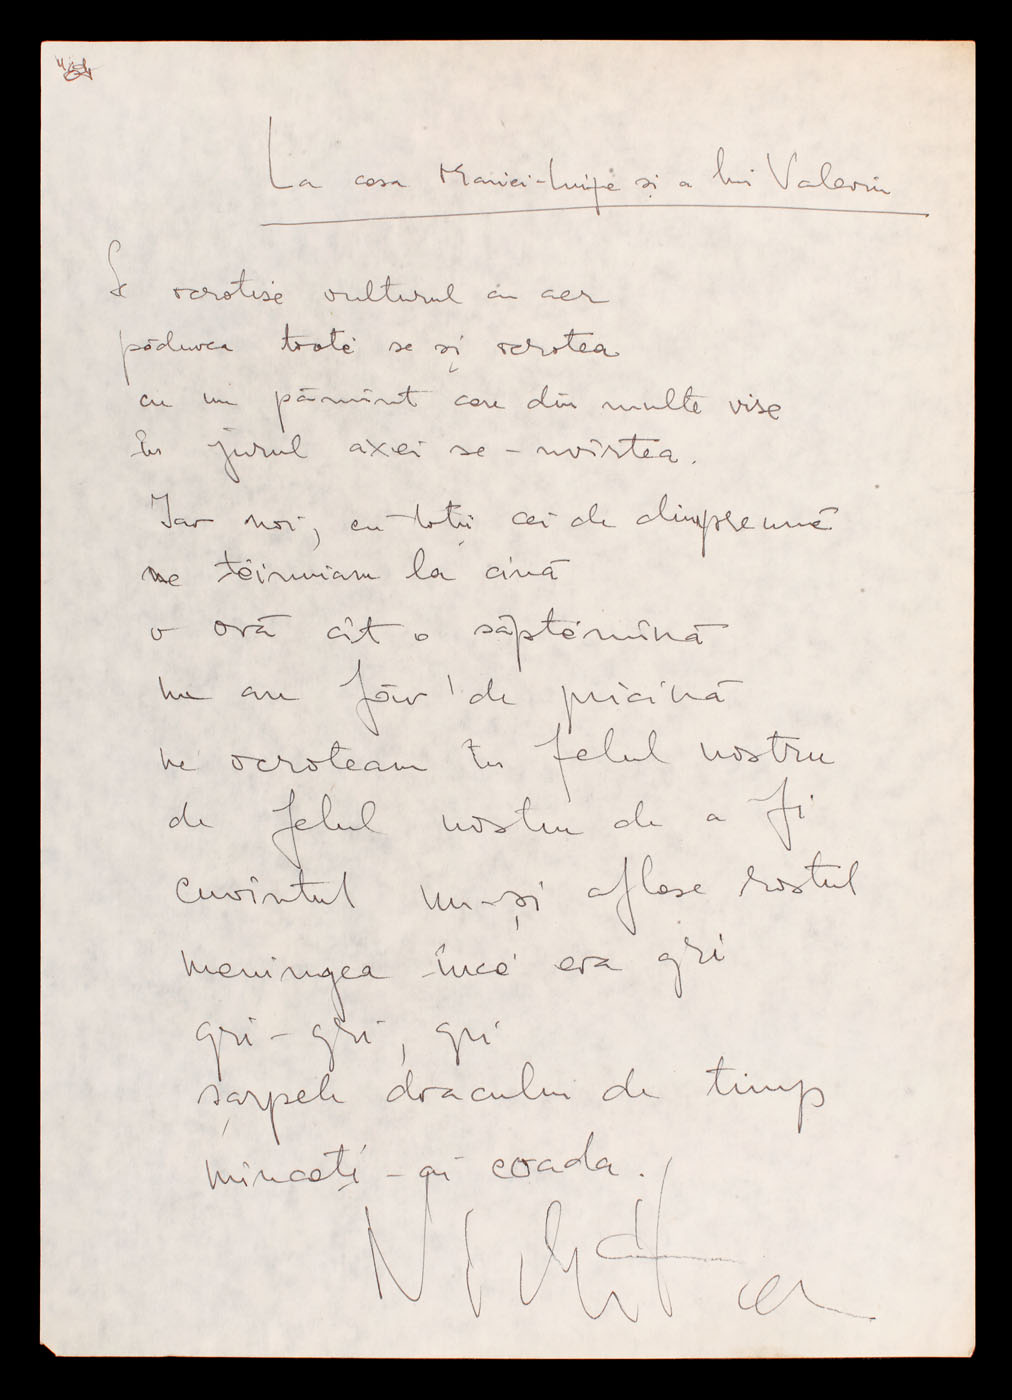 La casa Mariei-Luize și a lui Valeriu
Se ocrotise vulturul cu aer
pădurea toată se și ocrotea
cu un pămînt care din multe vise
în jurul axei se-nvîrtea.
Iar noi, cu toții cei de dimpreună
ne tăinuiam la cină
o oră cît o săptămînă
nu are făr' de pricină
ne ocroteam în felul nostru
de felul nostru de a fi
cuvîntul nu-și aflase rostul
meningea încă era gri
gri-gri, gri
șarpele dracului de timp
mîncați-și coada.
Nichita